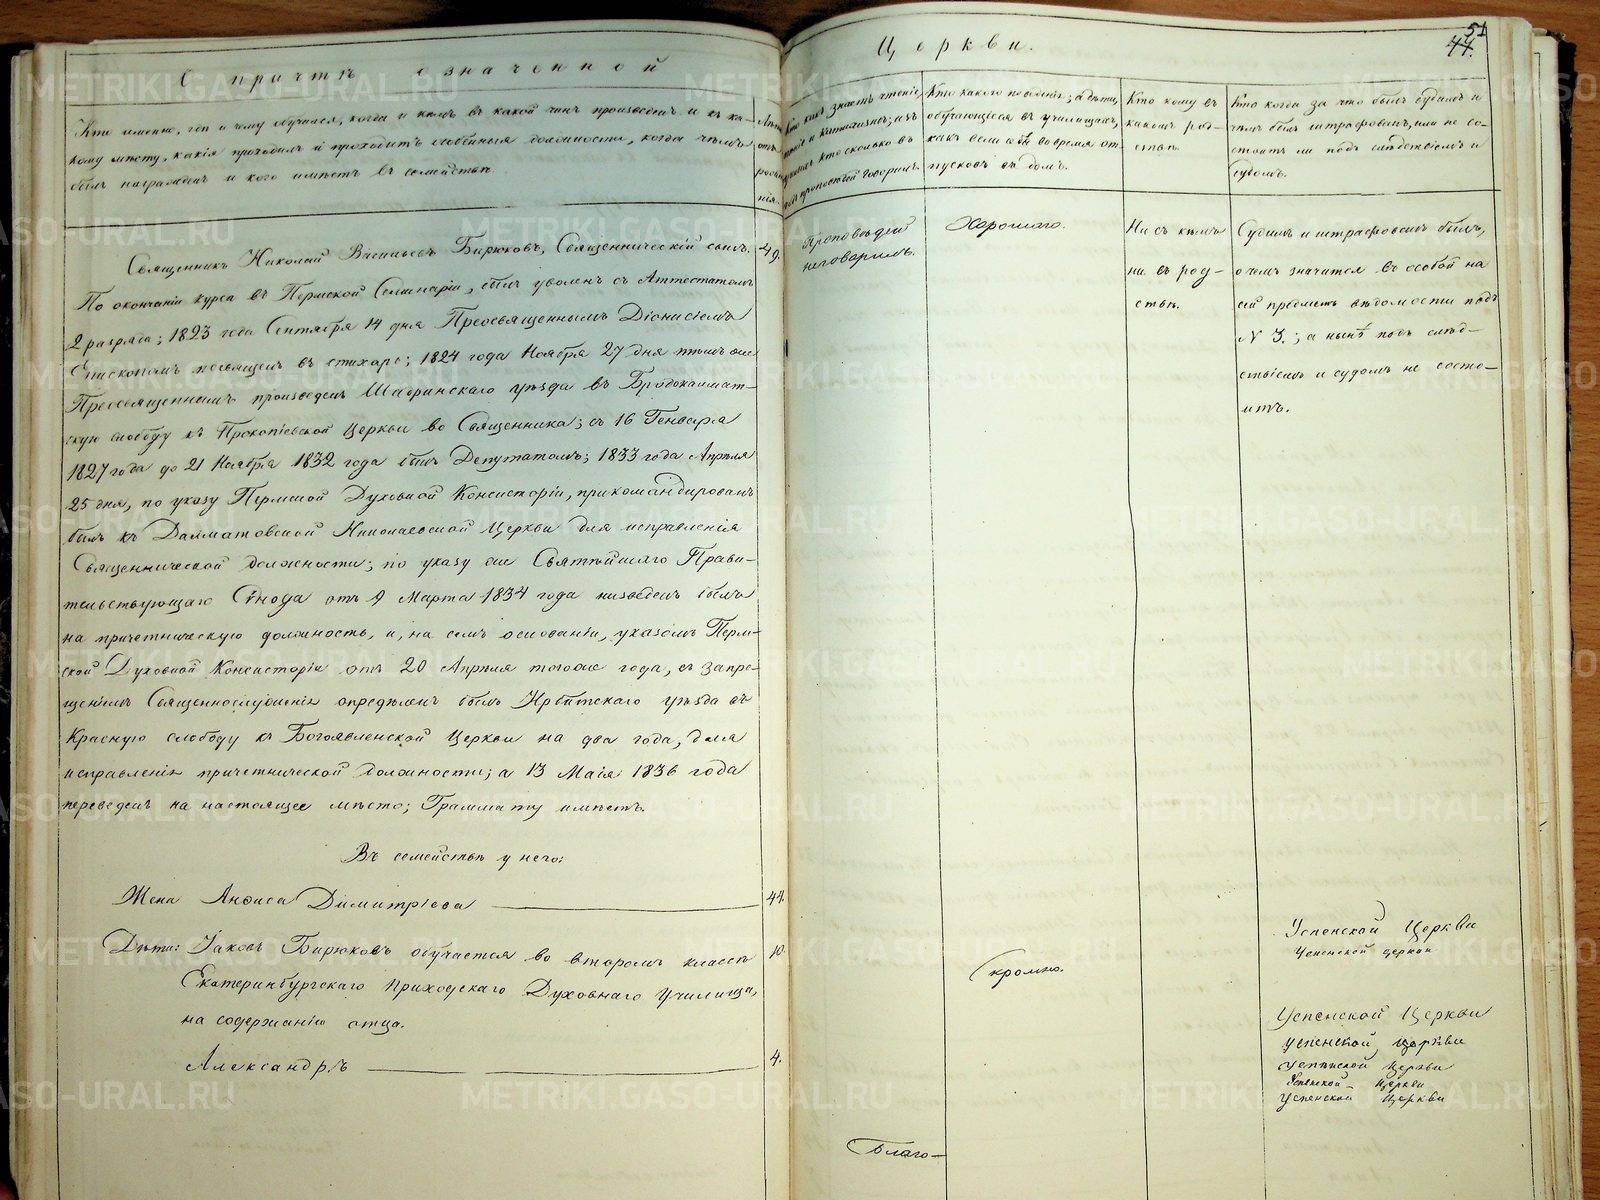 О причтѣ означенной
Церкви.
51
44.
Кто именно, гдѣ и чему обучался, когда и кѣмъ въ какой чинъ произведенъ и къ ка-
кому мѣсту, какія проходилъ и проходитъ особенныя должности, когда чѣмъ
былъ награжденъ и кого имѣетъ въ семействѣ.
Лѣта
отъ
рожде-
нія.
Кто какъ знаетъ чтеніе,
пѣніе и катихизисъ; и въ
кто сколько въ
годъ проповѣдей говорилъ.
Кто какого поведенія; а дѣти,
обучающіеся въ училищахъ,
какъ вели себя во время от-
пусковъ въ домъ.
Кто кому въ
какомъ род-
ствѣ.
Кто когда за что былъ судимъ и
чѣмъ былъ штрафованъ, или не со-
стоитъ ли подъ слѣдствіемъ и
судомъ.
Священникъ Николай Васильевъ Бирюковъ, Священническій сынъ.
49.
По окончаніи курса въ Пермской Семинаріи, былъ уволенъ съ Аттестатомъ
2 разряда; 1823 года Сентября 14 дня Преосвященнымъ Діонисіемъ
Епископомъ посвященъ въ стихарь; 1824 года Ноября 27 дня тѣмъ же
Преосвященнымъ произведенъ Шадринскаго уѣзда въ Бродокалмат-
скую слободу къ Прокопіевской Церкви во Священника; съ 16 Генваря
1827 года до 21 Ноября 1832 года былъ Депутатомъ; 1833 года Апрѣля
25 дня, по указу Пермской Духовной Консисторіи, прикомандированъ
былъ къ Далматовской Николаевской Церкви для исправленія
Священнической должности; по указу же Святѣйшаго Прави-
тельствующаго Сѵнода отъ 9 Марта 1834 года низведенъ былъ
на причетническую должность, и, на семъ основаніи, указомъ Перм-
ской Духовной Консисторіи отъ 20 Апрѣля тогоже года, съ запре-
щеніемъ Священнослуженія опредѣленъ былъ Ирбитскаго уѣзда въ
Красную слободу къ Богоявленской Церкви на два года, для
исправленія причетнической должности; а 13 Маія 1836 года
переведенъ на настоящее мѣсто; Грамматy имѣетъ.
Проповѣдей
неговорилъ.
Хорошаго.
Ни съ кѣмъ
ни въ род-
ствѣ.
Судимъ и штрафованъ былъ,
о чемъ значится въ особой на
сей предметъ вѣдомости подъ
N 3.; а нынѣ подъ слѣд-
ствіемъ и судомъ не состо-
итъ.
Въ семействѣ у него:
Жена Анфиса Димитріева
44.
Дѣти: Іаковъ Бирюковъ обучается во второмъ классѣ
10.
Екатеринбургскаго Приходскаго Духовнаго Училища,
на содержаніи отца.
Александръ
4.
Скромно.
Благо-
Успенской Церкви
Успенской церкви
Успенской Церкви
успенской церкви
успенской церкви
Успенской Церкви
Успенской Церкви
METRIKI.GASO-URAL.RU